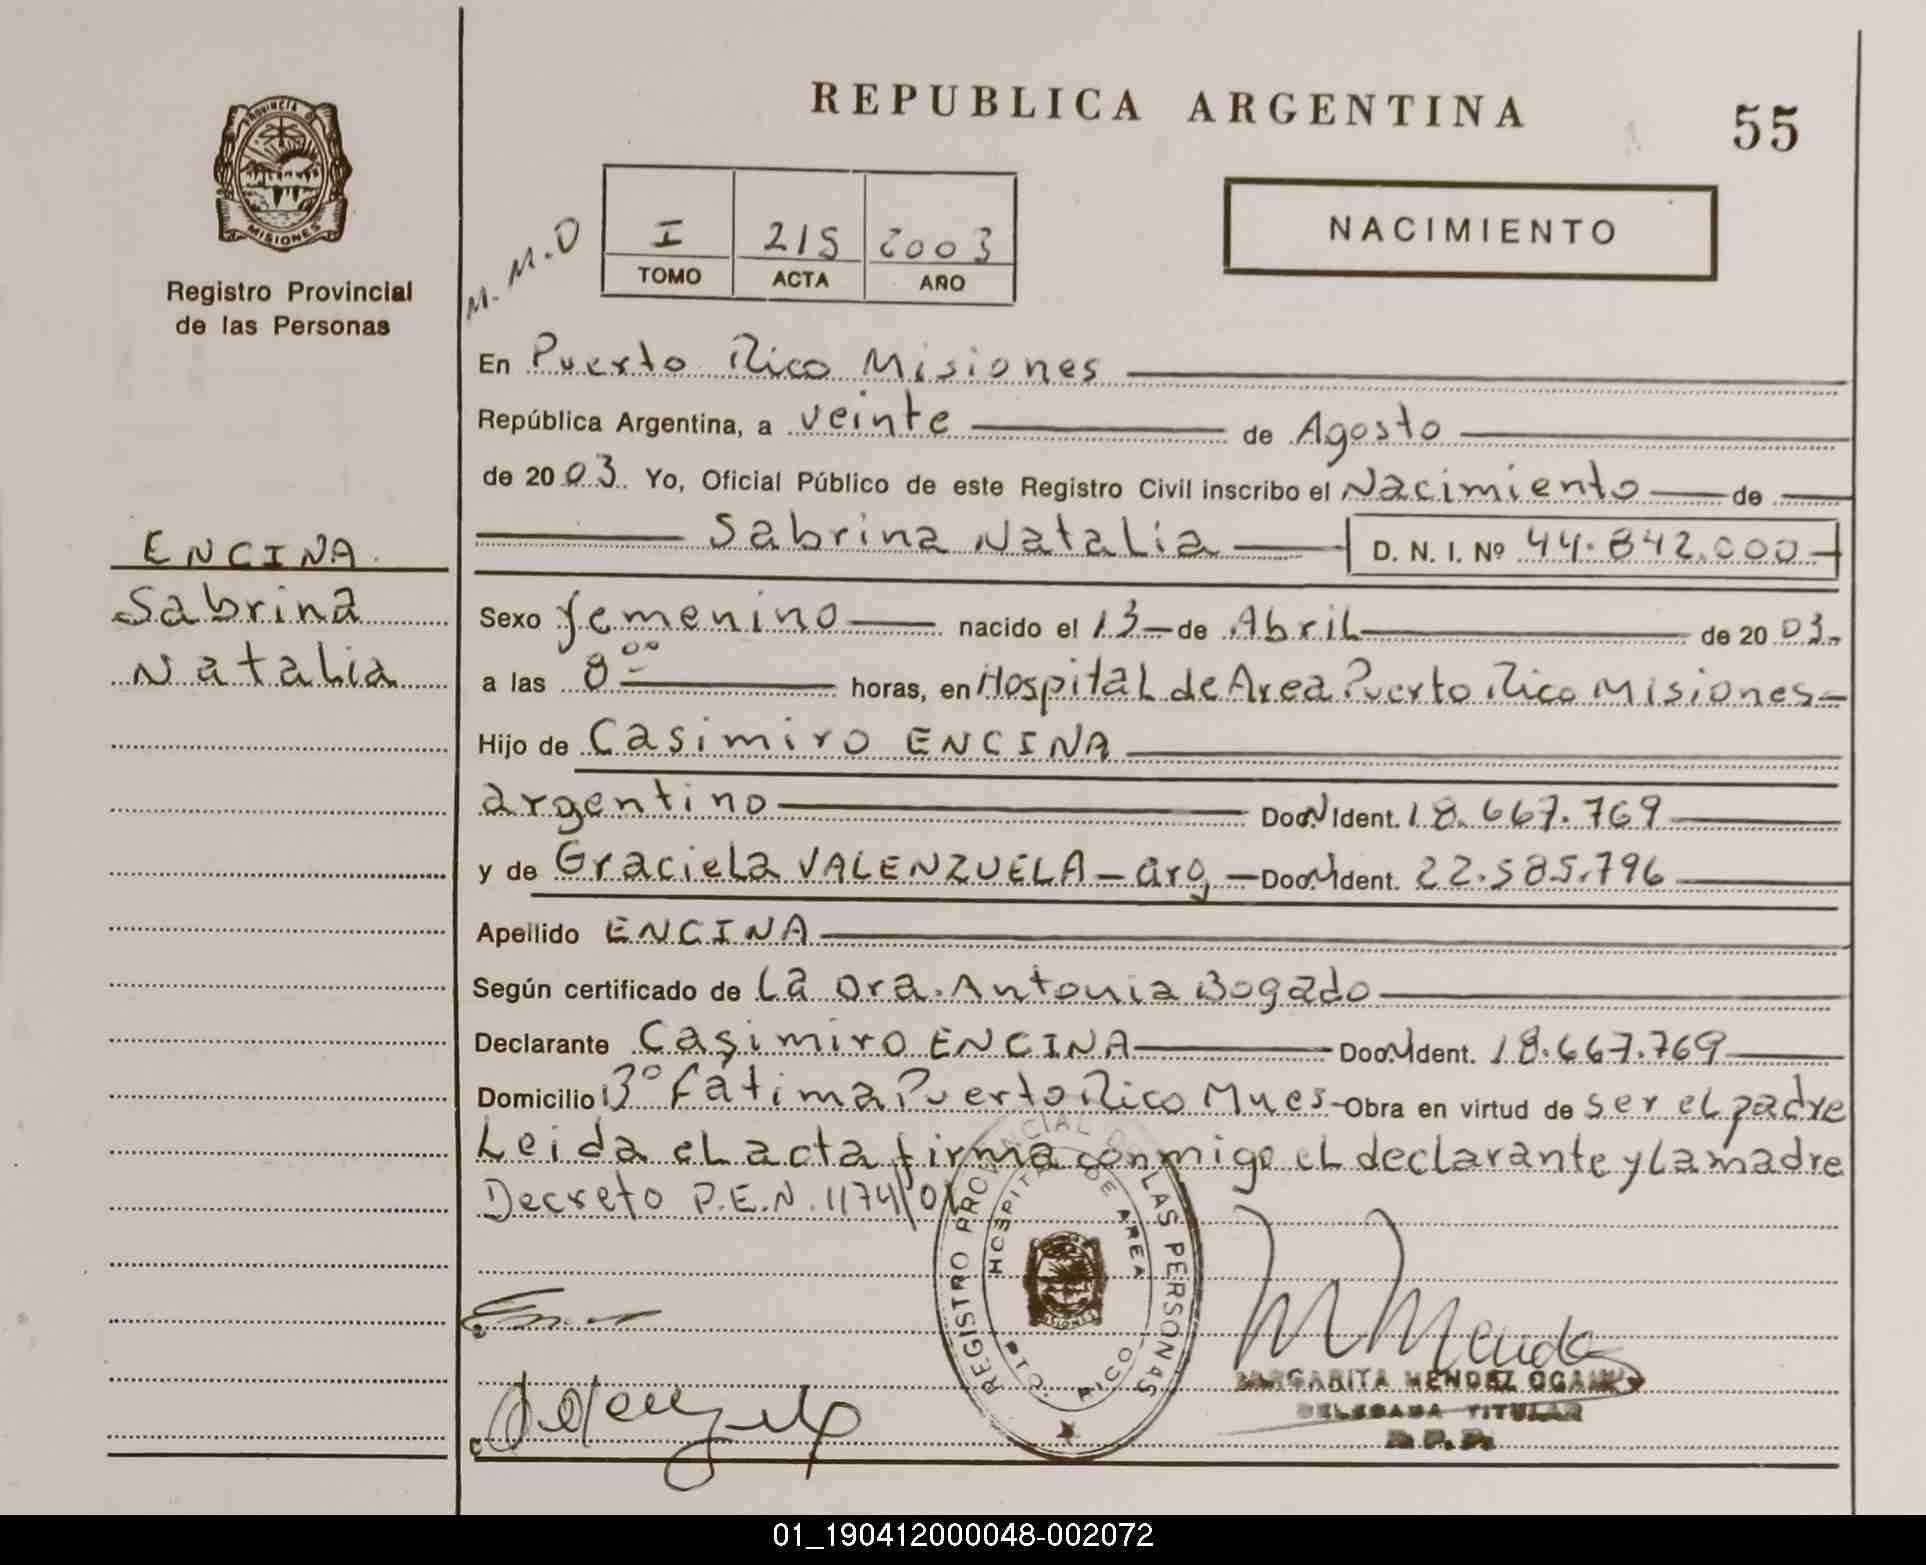 PROVINCIA DE
MISIONES
Registro Provincial
de las Personas
ENCINA
Sabrina
Natalia
REPUBLICA ARGENTINA
55
M.M.O
I 215 2003
TOMO ACTA AÑO
NACIMIENTO
En Puerto Rico Misiones
República Argentina, a veinte de Agosto
de 2003. Yo, Oficial Público de este Registro Civil inscribo el Nacimiento de
Sabrina Natalia D. N. I. Nº 44.842.000-
Sexo femenino nacido el 13 de Abril de 2003.
a las 8 00 horas, en Hospital de Area Puerto Rico Misiones-
Hijo de Casimiro ENCINA
argentino Doc.N Ident. 18.667.769
y de Graciela VALENZUELA - arg - Doc.N Ident. 22.585.796
Apellido ENCINA
Según certificado de La Dra. Antonia Bogado
Declarante Casimiro ENCINA Doc.N Ident. 18.667.769
Domicilio B° Fátima Puerto Rico Mnes- Obra en virtud de ser el padre
Leida el acta firma conmigo el declarante y la madre
Decreto P.E.N. 1174/01
REGISTRO PROVINCIAL DE LAS PERSONAS
HOSPITAL DE AREA
PTO. RICO
MISIONES
M Mendez
MARGARITA MENDEZ
DELEGADA TITULAR
01_190412000048-002072